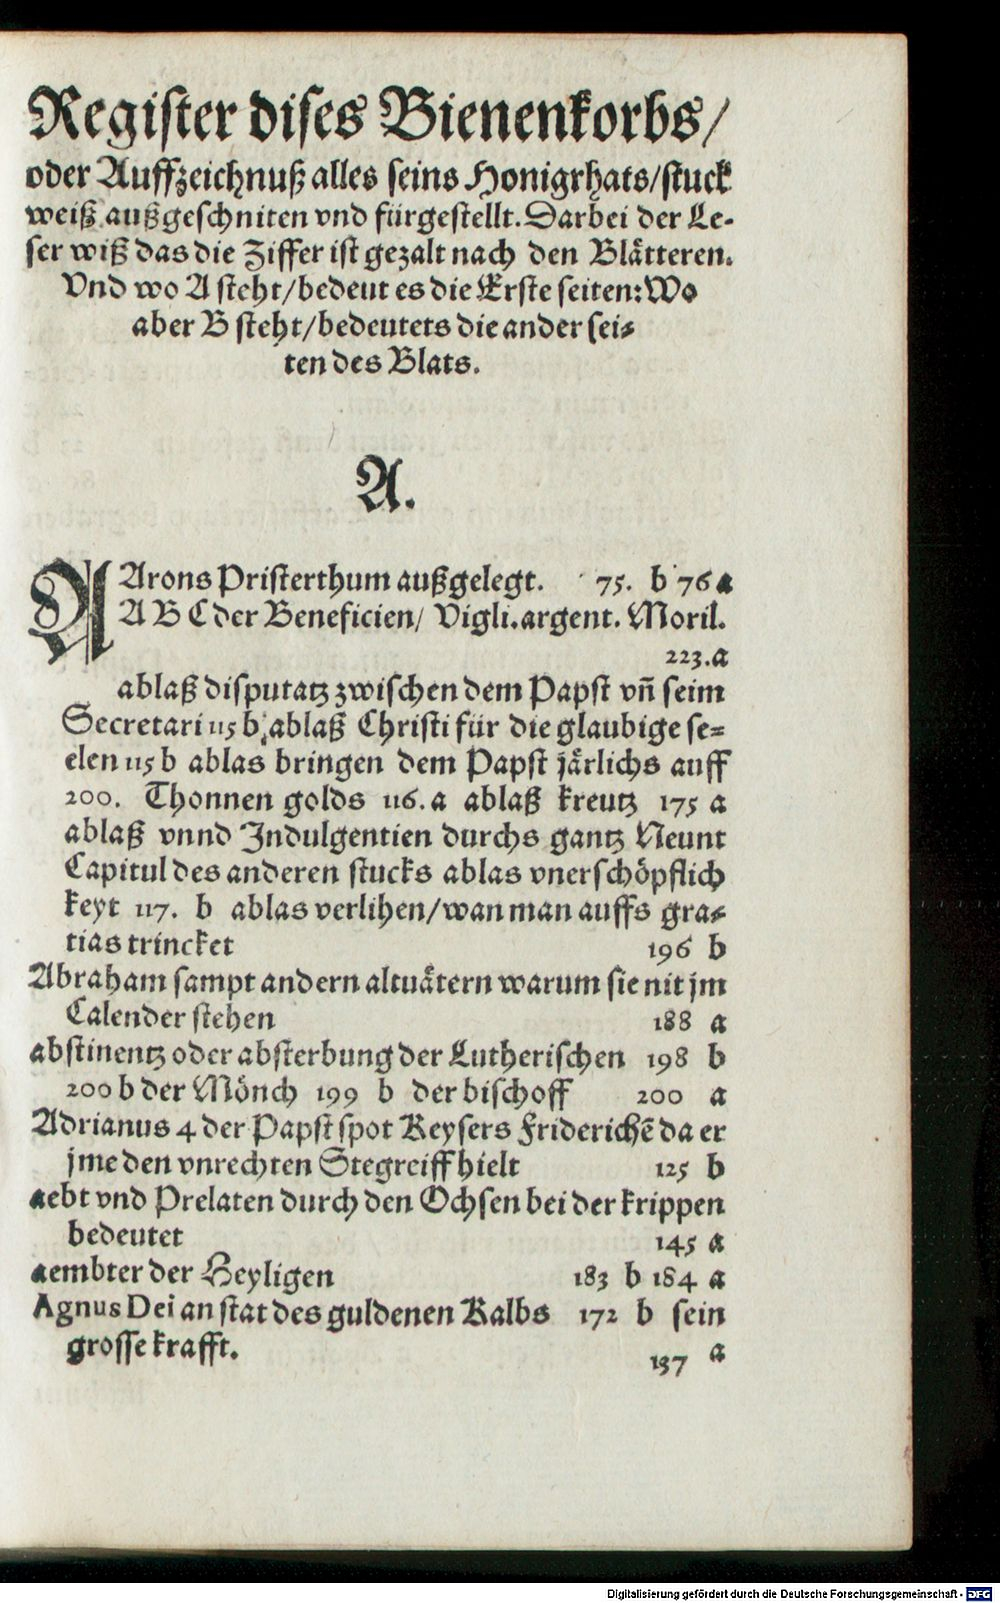 Register dises Bienenkorbs/
oder Auffzeichnuß alles seins Honigrhats/stuck
weiß außgeschniten vnd fürgestellt. Darbei der Le-
ser wiß das die Ziffer ist gezalt nach den Blätteren.
Vnd wo A steht/bedeut es die Erste seiten: Wo
aber B steht/bedeutets die ander sei-
ten des Blats.
A.
AArons Pristerthum außgelegt. 75. b 76 a
A B C der Beneficien/ Vigli. argent. Moril.
223.a
ablaß disputatz zwischen dem Papst vñ seim
Secretari 115 b, ablaß Christi für die glaubige se-
elen 115 b ablas bringen dem Papst järlichs auff
200. Thonnen golds 116. a ablaß kreutz 175 a
ablaß vnnd Indulgentien durchs gantz Neunt
Capitul des anderen stucks ablas vnerschöpflich
keyt 117. b ablas verlihen/wan man auffs gra-
tias trincket 196 b
Abraham sampt andern altuätern warum sie nit jm
Calender stehen 188 a
abstinentz oder absterbung der Lutherischen 198 b
200 b der Mönch 199 b der bischoff 200 a
Adrianus 4 der Papst spot Keysers Friderichē da er
jme den vnrechten Stegreiff hielt 125 b
aebt vnd Prelaten durch den Ochsen bei der krippen
bedeutet 145 a
aembter der Heyligen 183 b 184 a
Agnus Dei an stat des guldenen Kalbs 172 b sein
grosse krafft. 137 a
Digitalisierung gefördert durch die Deutsche Forschungsgemeinschaft - DFG